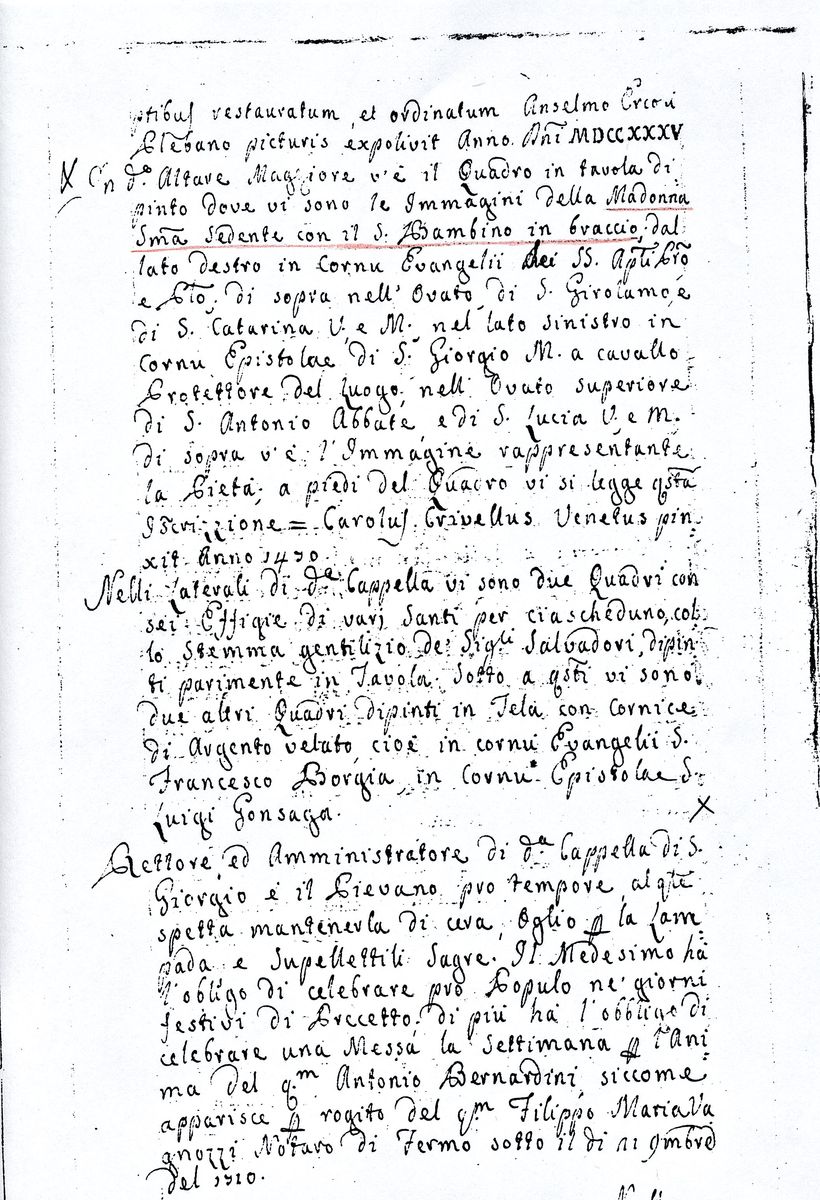 ptibus restauratum, et ordinatum Anselmo Ercoli
Plebano picturis expolivit Anno Dñi MDCCXXXV
X In d.º Altare Maggiore v'è il Quadro in tavola di
pinto dove vi sono le Immagini della Madonna
Smã Sedente con il S. Bambino in braccio, dal
lato destro in Cornu Evangelii dei SS. Apli Pro
e Plo, di sopra nell' Ovato di S. Girolamo, e
di S. Catarina V. e M. nel lato sinistro in
Cornu Epistolae di S. Giorgio M. a cavallo
Protettore del Luogo, nell' Ovato superiore
di S. Antonio Abbate, e di S. Lucia V. e M.
di sopra v'è l'Immagine rappresentante
la Pietà, a piedi del Quadro vi si legge qsta
Iscrizzione = Carolus Crivellus Venetus pin:
xit Anno 1470.
Nelli Laterali di d.ª Cappella vi sono due Quadri con
sei Effigie di varj Santi per ciascheduno, col:
lo Stemma gentilizio de' Sig.li Salvadori, dipin:
ti parimente in Tavola. Sotto a qsti vi sono
due altri Quadri dipinti in Tela con Cornice
di Argento velato cioè in cornu Evangelii S.
Francesco Borgia, in Cornu Epistolae S.
Luigi Gonsaga. X
Rettore, ed Amministratore di d.ª Cappella di S.
Giorgio è il Pievano pro tempore, al qle
spetta mantenerla di cera, Oglio p la Lam:
pada e Supellettili Sagre. Il Medesimo hà
l'obligo di celebrare pro Populo ne' giorni
festivi di Precetto, di più hà l'obbligo di
celebrare una Messa la Settimana p l'Ani:
ma del q.m Antonio Bernardini siccome
apparisce p rogito del q.m Filippo Maria Va
gnozzi Notaro di Fermo sotto il dì 21 9mbre
del 1710.